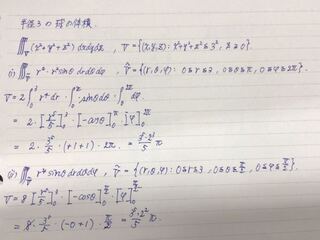 半径3の球の体積.
∭_V (x²+y²+z²) dxdydz , V={(x,y,z): x²+y²+z²≦3², z≧0}
(i) ∭_Ṽ r²·r²sinθ drdθdφ , Ṽ={(r,θ,φ): 0≦r≦3, 0≦θ≦π, 0≦φ≦2π}
V=2∫₀³ r⁴dr · ∫₀^π sinθdθ · ∫₀^{2π} dφ
= 2·[r⁵/5]₀³ · [-cosθ]₀^π [φ]₀^{2π}
= 2· 3⁵/5 ·(+1+1)·2π = 3⁵·2³/5 π
(ii) ∭_Ṽ r²sinθ drdθdφ , Ṽ={(r,θ,φ): 0≦r≦3, 0≦θ≦π/2, 0≦φ≦π/2}
V=8[r⁵/5]₀³ · [-cosθ]₀^{π/2} · [φ]₀^{π/2}
= 8· 3⁵/5 ·(-0+1)· π/2 = 3⁵·2²/5 π